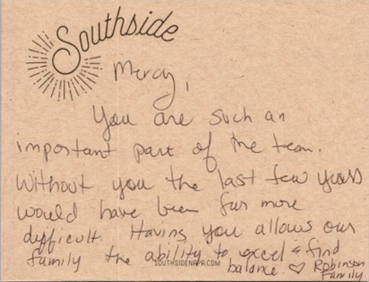 Southside
Mercy,
You are such an
important part of the team.
Without you the last few years
would have been far more
difficult. Having you allows our
family the ability to excel & find
SOUTHSIDENRPR.COM
balance ♡ Robinson
Family